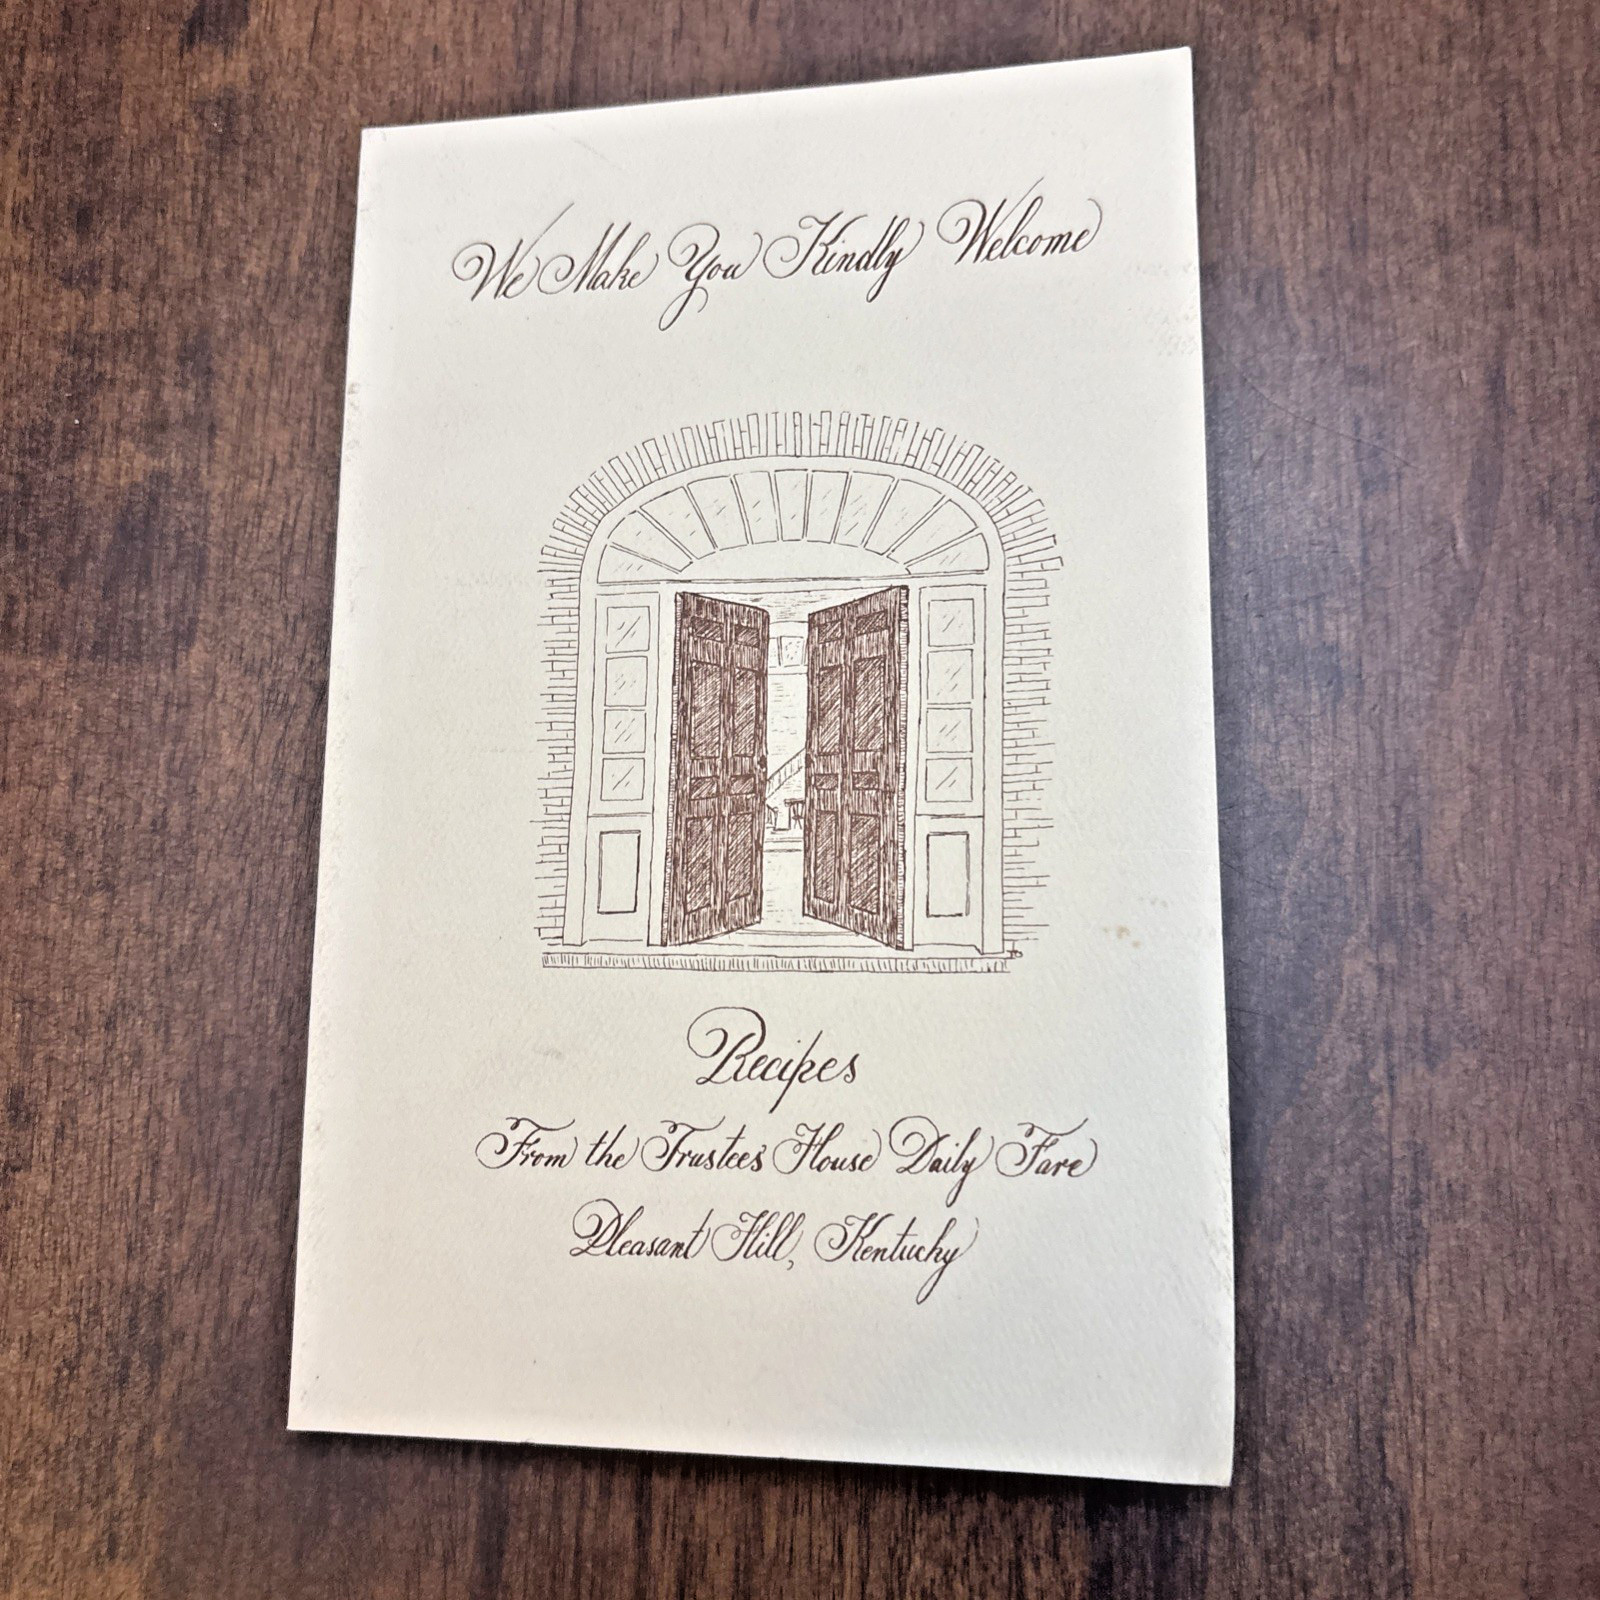 We Make You Kindly Welcome
Recipes
From the Trustees' House Daily Fare
Pleasant Hill, Kentucky